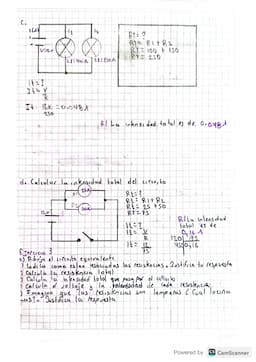 C.
Rt= ?
Rt= R1 + R2
Rt= 100 + 150
Rt= 250
It= ?
It= V
R
It= 12V = 0.048A
250
R/ La intensidad total es de 0.048A
d. Calcular la intensidad total del circuito
Rt= ?
Rt= R1+R2
Rt= 25+50
Rt= 75
It= ?
It= V
R
It= 12
75
R/ La intensidad
total es de
0,16A
Ejercicio 3
a) Dibuja el circuito equivalente
Indica como estan asociadas las resistencias. Justifica tu respuesta
Calcula la resistencia total
Calcula la intensidad total que pasa por el circuito
Calcula el voltaje y la intensidad de cada resistencia
Imagina que las resistencias son lamparas ¿Cual luciria
mas?. Justifica la respuesta
Powered by CamScanner